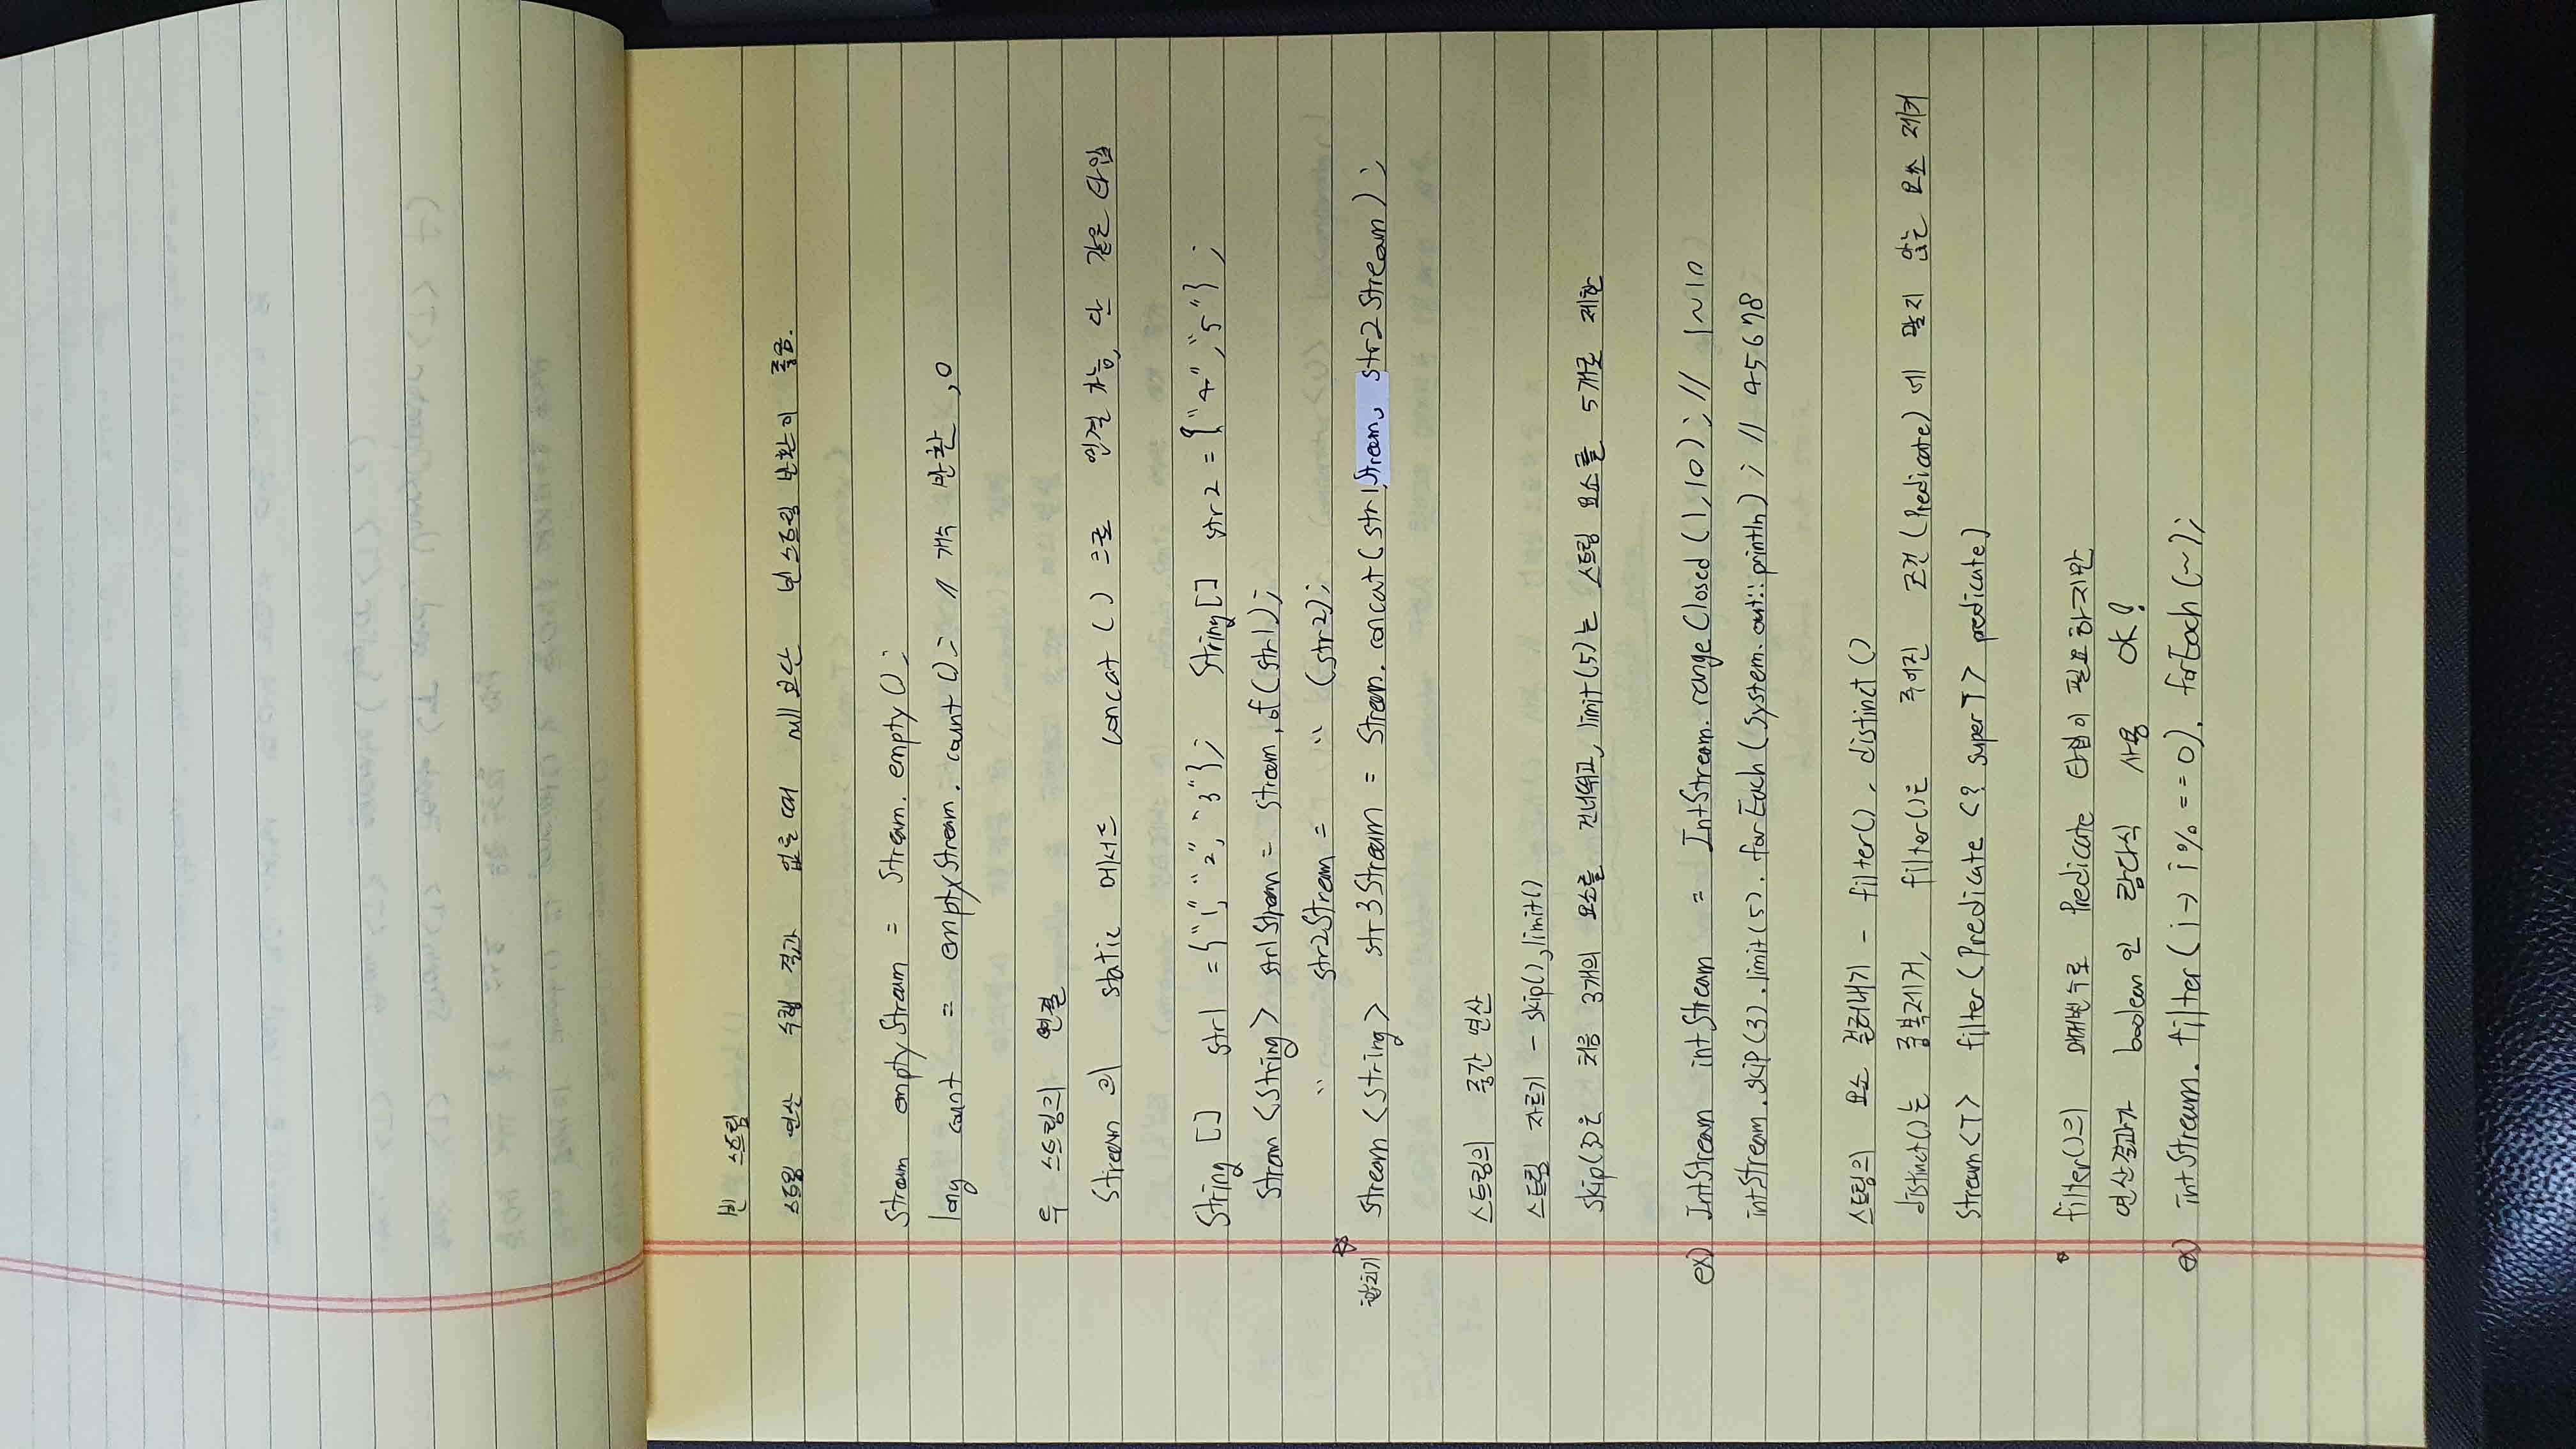 빈 스트림
스트림 연산 수행 결과 없을때 null 보단 빈스트림 반환이 좋음.
Stream emptyStream = Stream.empty();
long count = emptyStream.count(); // 개수 반환, 0
두 스트림의 연결
Stream의 static 메서드 concat()으로 연결 가능, 단 같은 타입
String[] str1 = {"1", "2", "3"}; String[] str2 = {"4", "5"};
Stream<String> str1Stream = Stream.of(str1);
" str2Stream = " (str2);
합치기 Stream<String> str3Stream = Stream.concat(str1Stream, str2Stream);
스트림의 중간 연산
스트림 자르기 - skip(), limit()
skip(3)은 처음 3개의 요소를 건너뛰고, limit(5)는 스트림 요소를 5개로 제한
ex) IntStream intStream = IntStream.rangeClosed(1,10); // 1~10
intStream.skip(3).limit(5).forEach(System.out::println); // 45678
스트림의 요소 걸러내기 - filter(), distinct()
distinct()는 중복제거, filter()는 주어진 조건(Predicate)에 맞지 않는 요소 제거
Stream<T> filter(Predicate<? super T> predicate)
filter()의 매개변수로 Predicate 타입이 필요하지만
연산결과가 boolean인 람다식 사용 OK!
ex) intStream.filter(i→ i% ==0).forEach(~);